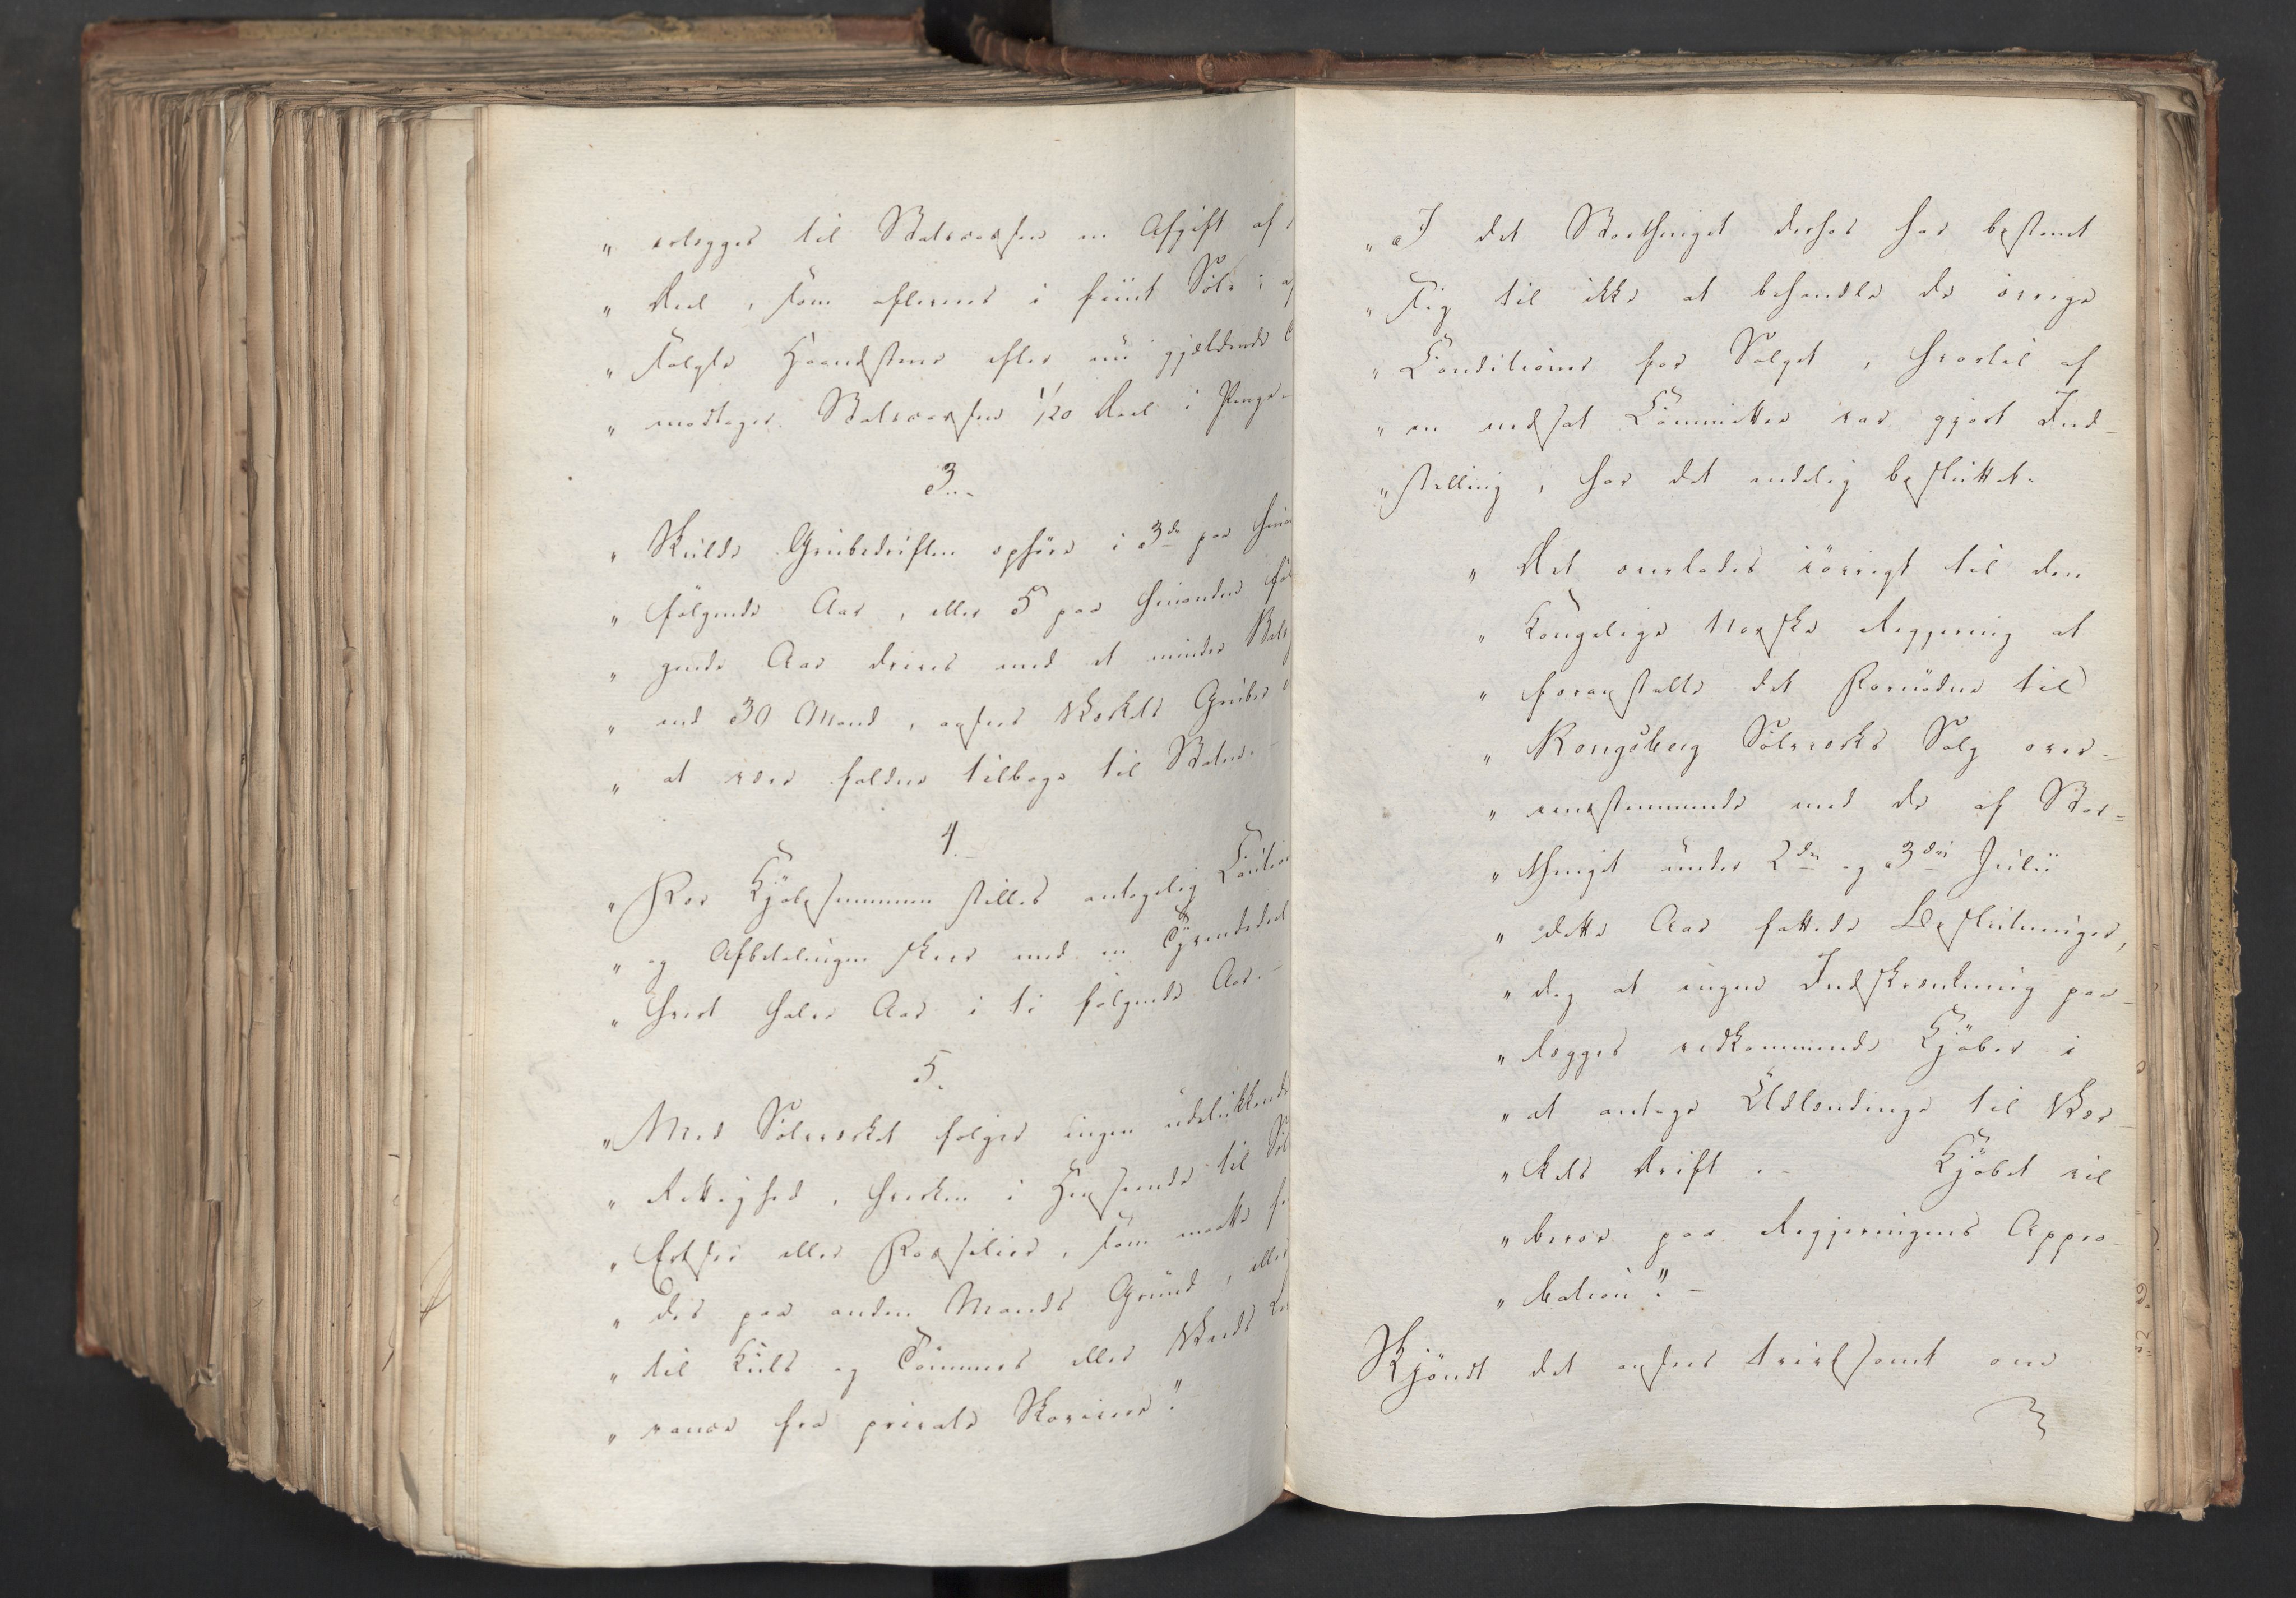 " erlægges til Statscassen en Afgift af
" Deel, som afleveres i fiint Sølv; af
" solgte Haandstene efter nu gjeldende
" modtager Statscassen 1/20 Deel i Penge.
3.
" Skulde Grubedriften ophøre i 3de paa hinan
" følgende Aar, eller 5 paa hinanden føl
" gende Aar drives med et mindre Belæg
" end 30 Mand, ansees Værkets Gruber
" at være faldne tilbage til Staten.-
4.
" For Kjøbesummen stilles antagelig Caution
" og Afbetalingen skeer med en Tyvendedeel
" hvert halve Aar i ti følgende Aar.-
5.
" Med Sølvværket følger ingen udelukkende
" Rettighed, hverken i Henseende til Sølv
" Ertser eller Fossilier, som maatte fin
" des paa anden Mands Grund, eller
" til Kuls og Tømmers eller Veeds Le
" rance fra private Skoveiere".
" I det Storthinget derhos har bestemt
" sig til ikke at behandle de øvrige
" Conditioner for Salget, hvortil af
" en nedsat Committee var gjort Ind-
" stilling, har det endelig besluttet.
" Det overlades iøvrigt til den
" Kongelige Norske Regjering at
" foranstalte det Fornødne til
" Kongsberg Sølvværks Salg over-
" eensstemmende med de af Stor=
" thinget under 2den og 3die Julii
" dette Aar fattede Beslutninger,
" dog at ingen Indskrænkning paa-
" lægges vedkommende Kjøber i
" at antage Udlændinge til Vær-
" kets Drift.- Kjøbet vil
" beroe paa Regjeringens Appro-
" bation".-
Skjøndt det ansees tvivlsomt om